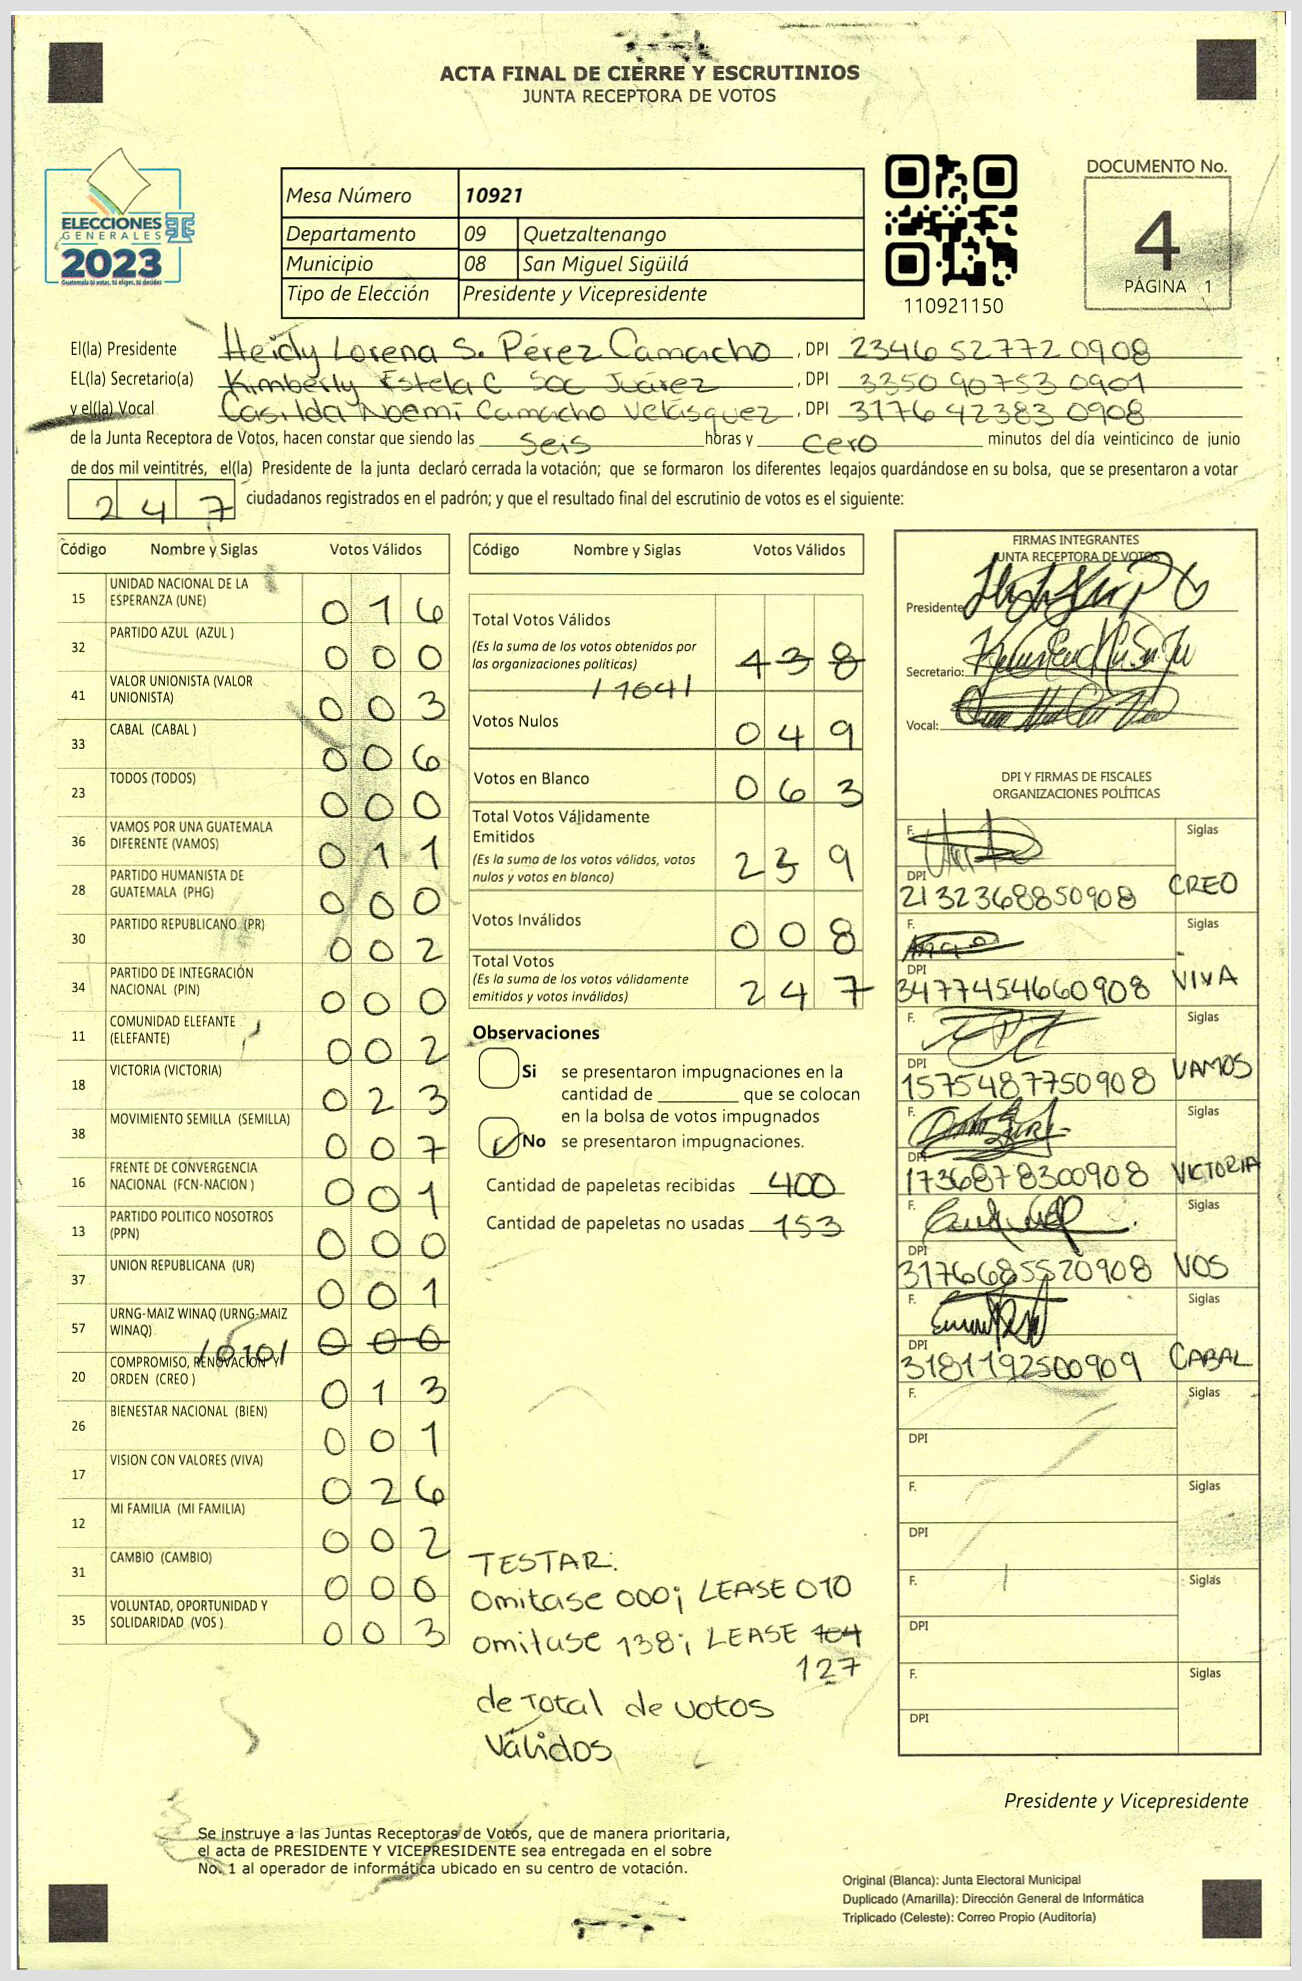 ACTA FINAL DE CIERRE Y ESCRUTINIOS
JUNTA RECEPTORA DE VOTOS
ELECCIONES
GENERALES
2023
Guatemala tú votas, tú eliges, tú decides
Mesa Número 10921
Departamento 09 Quetzaltenango
Municipio 08 San Miguel Sigüilá
Tipo de Elección Presidente y Vicepresidente
110921150
DOCUMENTO No.
4
PÁGINA 1
El(la) Presidente Heidy Lorena S. Pérez Camacho, DPI 2346 52772 0908
EL(la) Secretario(a) Kimberly Estela C Soc Juárez, DPI 3350 90753 0901
y el(la) Vocal Casilda Noemí Camacho Velásquez, DPI 3176 42383 0908
de la Junta Receptora de Votos, hacen constar que siendo las seis horas y cero minutos del día veinticinco de junio
de dos mil veintitrés, el(la) Presidente de la junta declaró cerrada la votación; que se formaron los diferentes legajos guardándose en su bolsa, que se presentaron a votar
247 ciudadanos registrados en el padrón; y que el resultado final del escrutinio de votos es el siguiente:
Código Nombre y Siglas Votos Válidos
15 UNIDAD NACIONAL DE LA ESPERANZA (UNE) 016
32 PARTIDO AZUL (AZUL ) 000
41 VALOR UNIONISTA (VALOR UNIONISTA) 003
33 CABAL (CABAL ) 006
23 TODOS (TODOS) 000
36 VAMOS POR UNA GUATEMALA DIFERENTE (VAMOS) 011
28 PARTIDO HUMANISTA DE GUATEMALA (PHG) 000
30 PARTIDO REPUBLICANO (PR) 002
34 PARTIDO DE INTEGRACIÓN NACIONAL (PIN) 000
11 COMUNIDAD ELEFANTE (ELEFANTE) 002
18 VICTORIA (VICTORIA) 023
38 MOVIMIENTO SEMILLA (SEMILLA) 007
16 FRENTE DE CONVERGENCIA NACIONAL (FCN-NACION ) 001
13 PARTIDO POLITICO NOSOTROS (PPN) 000
37 UNION REPUBLICANA (UR) 001
57 URNG-MAIZ WINAQ (URNG-MAIZ WINAQ) 000
/010/
20 COMPROMISO, RENOVACIÓN Y ORDEN (CREO ) 013
26 BIENESTAR NACIONAL (BIEN) 001
17 VISION CON VALORES (VIVA) 026
12 MI FAMILIA (MI FAMILIA) 002
31 CAMBIO (CAMBIO) 000
35 VOLUNTAD, OPORTUNIDAD Y SOLIDARIDAD (VOS ) 003
Código Nombre y Siglas Votos Válidos
Total Votos Válidos
(Es la suma de los votos obtenidos por
las organizaciones políticas) 138
Votos Nulos 049
Votos en Blanco 063
Total Votos Válidamente
Emitidos
(Es la suma de los votos válidos, votos
nulos y votos en blanco) 239
Votos Inválidos 008
Total Votos
(Es la suma de los votos válidamente
emitidos y votos inválidos) 247
Observaciones
Si se presentaron impugnaciones en la
cantidad de ________ que se colocan
en la bolsa de votos impugnados
No se presentaron impugnaciones.
Cantidad de papeletas recibidas 400
Cantidad de papeletas no usadas 153
TESTAR:
Omitase 000; LEASE 010
omitase 138; LEASE 104
127
de total de votos
Válidos
FIRMAS INTEGRANTES
JUNTA RECEPTORA DE VOTOS
Presidente:
Secretario:
Vocal:
DPI Y FIRMAS DE FISCALES
ORGANIZACIONES POLÍTICAS
F. Siglas
DPI 2132368850908 CREO
F. Siglas
DPI 3477454660908 VIVA
F. Siglas
DPI 1575487750908 VAMOS
F. Siglas
DPI 1736878300908 VICTORIA
F. Siglas
DPI 3176685520908 VOS
F. Siglas
DPI 3181192500909 CABAL
F. Siglas
DPI
F. Siglas
DPI
F. Siglas
DPI
F. Siglas
DPI
Presidente y Vicepresidente
Se instruye a las Juntas Receptoras de Votos, que de manera prioritaria,
el acta de PRESIDENTE Y VICEPRESIDENTE sea entregada en el sobre
No. 1 al operador de informática ubicado en su centro de votación.
Original (Blanca): Junta Electoral Municipal
Duplicado (Amarilla): Dirección General de Informática
Triplicado (Celeste): Correo Propio (Auditoría)